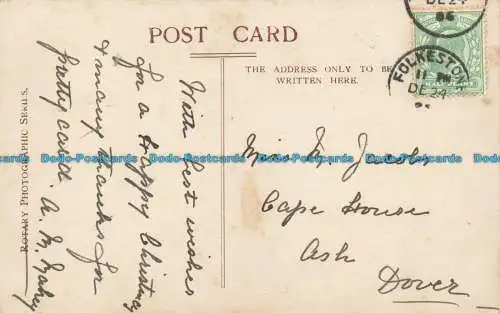 POST CARD
THE ADDRESS ONLY TO BE
WRITTEN HERE.
ROTARY PHOTOGRAPHIC SERIES.
With best wishes
for a Happy Christmas
& many thanks for
pretty card. A. M.
Miss
Cape House
Ash
Dover
FOLKESTON
11 PM
DE 24
DE 24
06
HALFPENNY
Dodo-Postcards Dodo-Postcards Dodo-Postcards Dodo-Postcards Dodo-Postcards